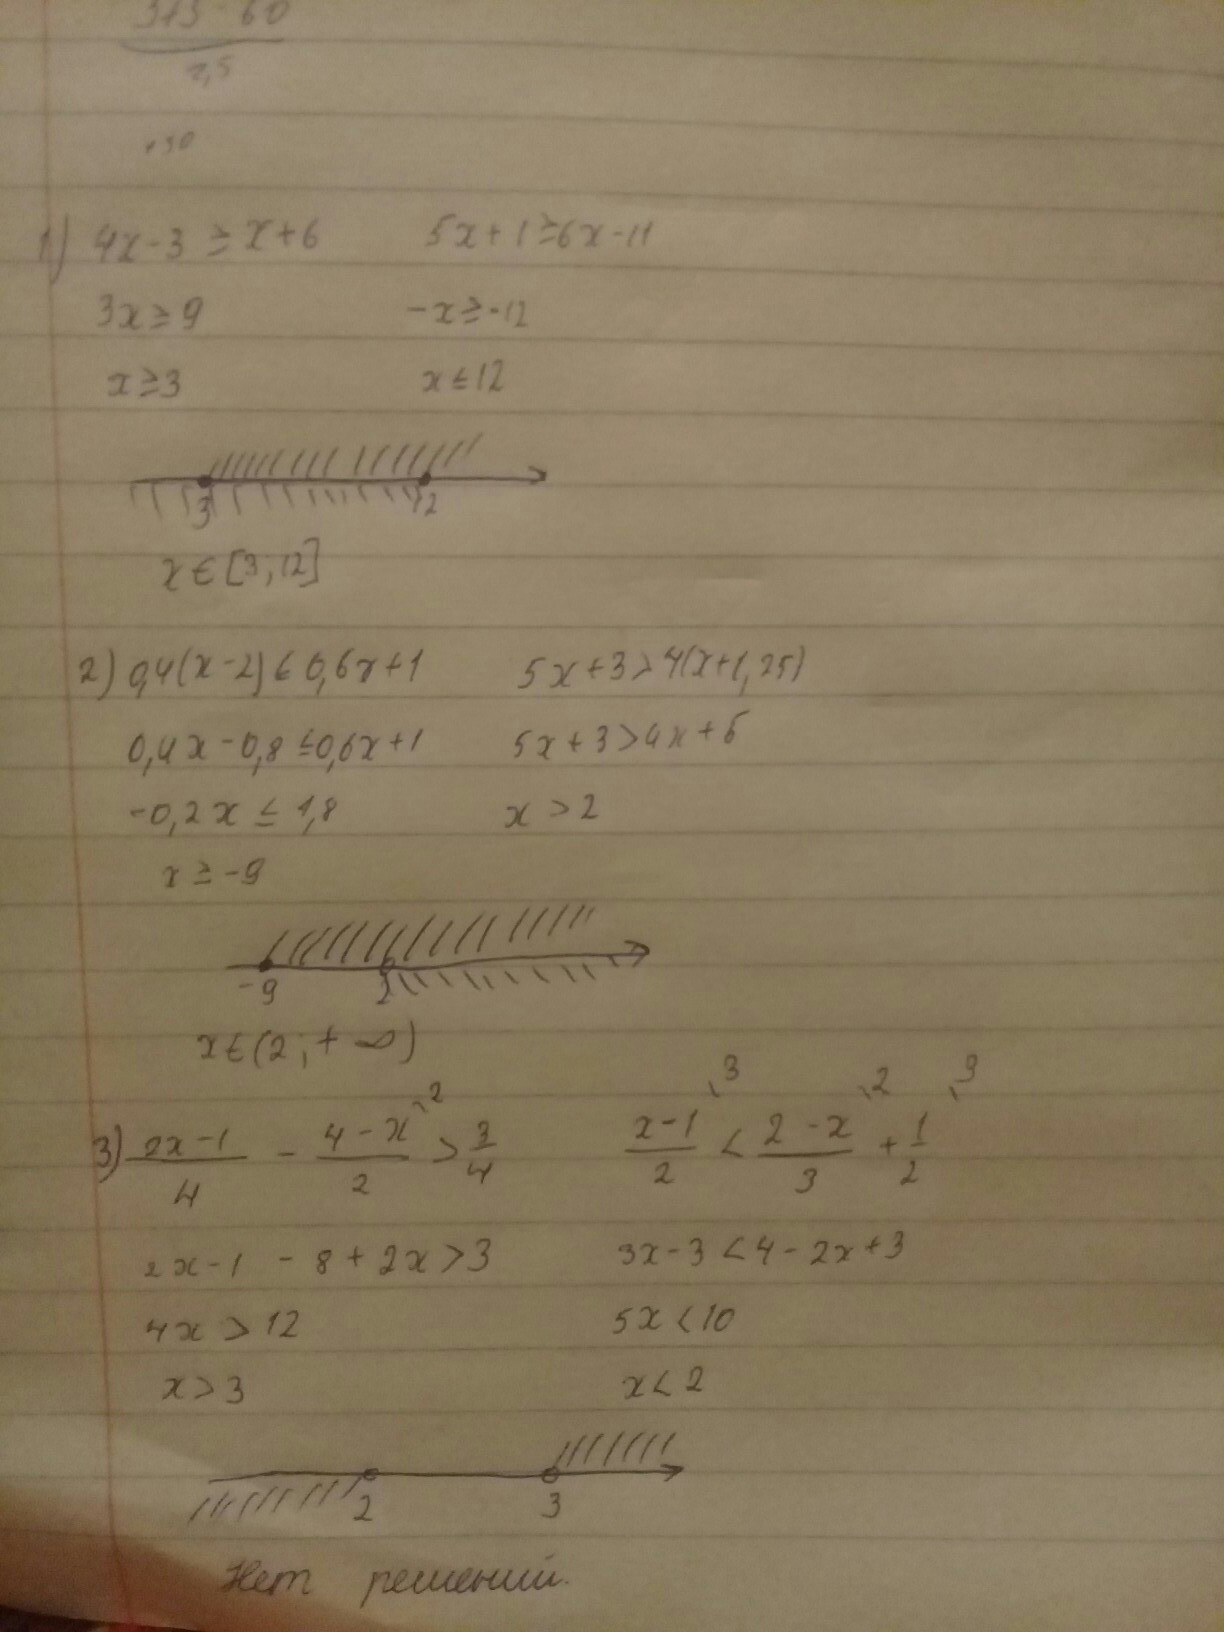 313 · 60
2,5
130
1) 4x-3 ≥ x+6 5x+1≥6x-11
3x ≥ 9 -x ≥ -12
x≥3 x ≤ 12
3 12
x ∈ [3; 12]
2) 0,4(x-2) ≤ 0,6x+1 5x+3>4(x+1,25)
0,4x-0,8 ≤ 0,6x+1 5x+3>4x+5
-0,2x ≤ 1,8 x > 2
x ≥ -9
-9 2
x∈(2; +∞)
3) (2x-1)/4 - (4-x)/2 \2 > 3/4 (x-1)/2 \3 < (2-x)/3 \2 + 1/2 \3
2x-1 - 8+2x>3 3x-3<4-2x+3
4x > 12 5x<10
x>3 x<2
2 3
Нет решений.